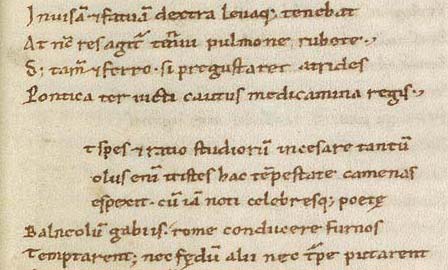 Inuisā & fatuā dextra leuaq; tenebat
At nc̄ res agit᷑ tenui pulmone rubete.,
S; tam̄ & ferro. si pregustaret atrides
Pontica ter uicti cautus medicamina regis.,
t spes & ratio studiorū incesare tantū
olus enī tristes hac tēpestate camenas
espexit. cū iā noti celebresq; poetę
Balneolū gabiis. rome conducere furnos
Temptarent; nec fędū alii nec t̄pe putarent